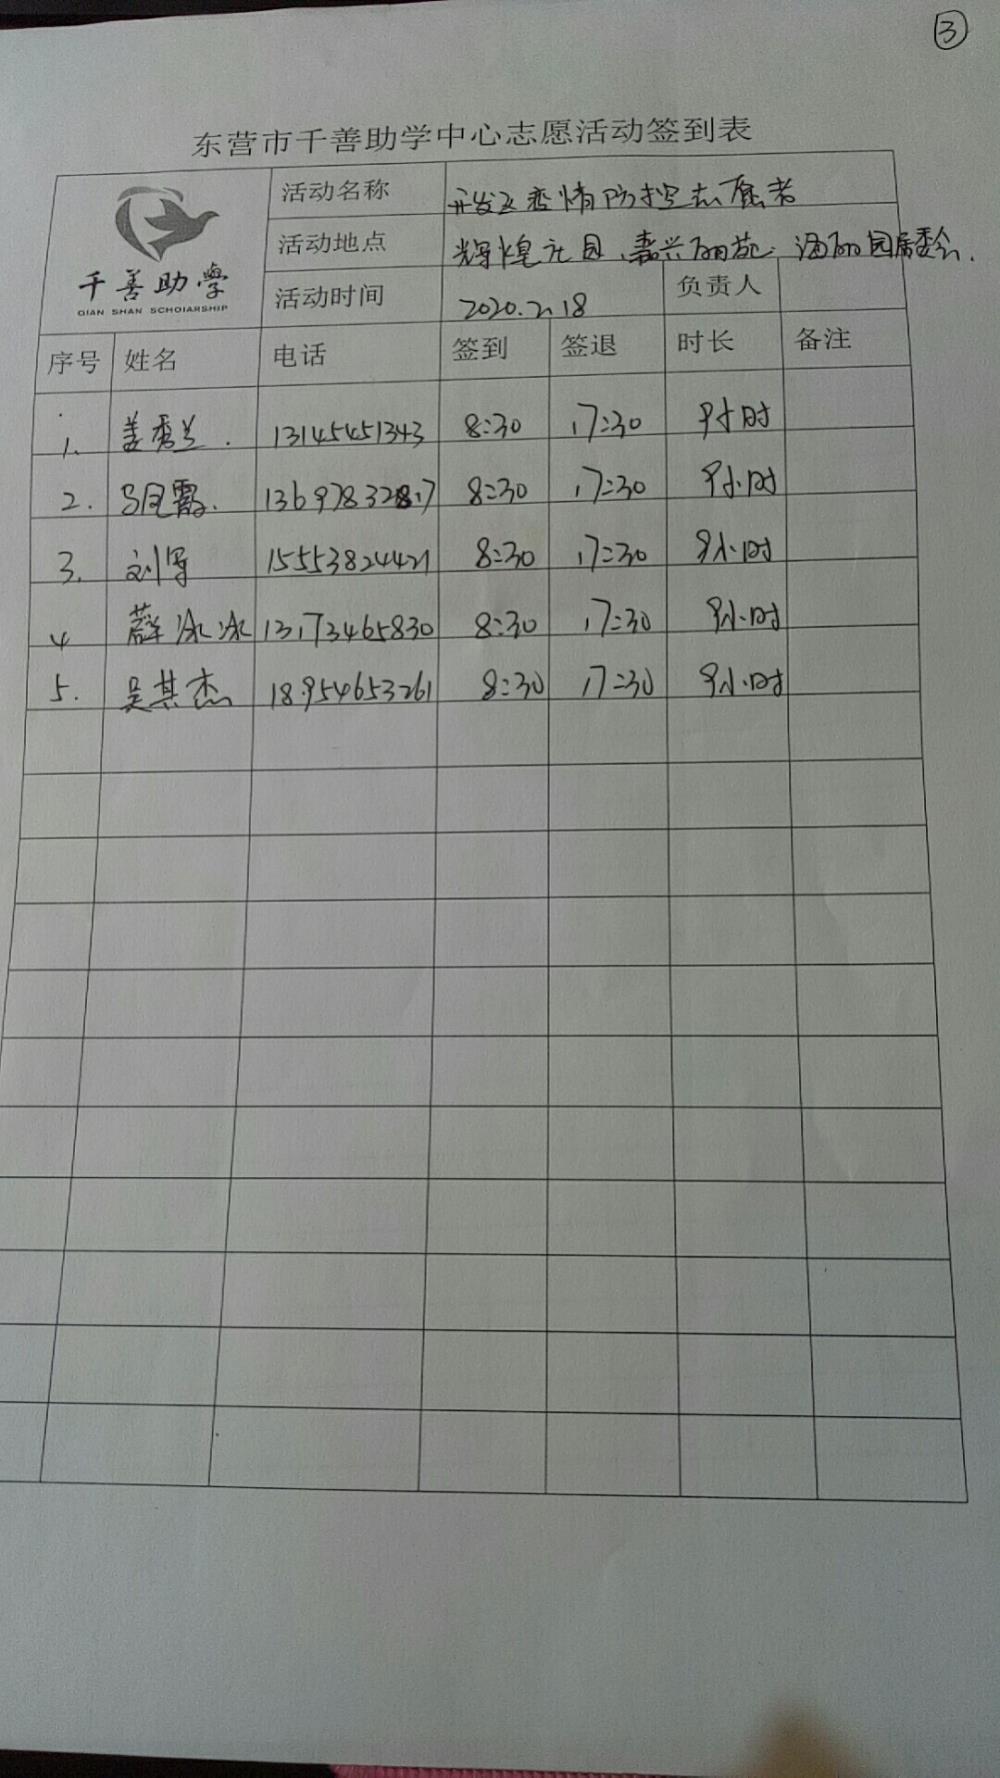 ③
东营市千善助学中心志愿活动签到表
千善助學
QIAN SHAN SCHOIARSHIP
活动名称 开发区疫情防控志愿者
活动地点 辉煌花园、嘉兴丽苑、居委会.
活动时间 2020.2.18 负责人
序号 姓名 电话 签到 签退 时长 备注
1. 姜秀兰. 13145451343 8:30 17:30 9小时
2. 8:30 17:30 9小时
3. 刘军 15553824421 8:30 17:30 9小时
4 薛冰冰 13173465830 8:30 17:30 9小时
5. 吴其杰 18954653261 8:30 17:30 9小时